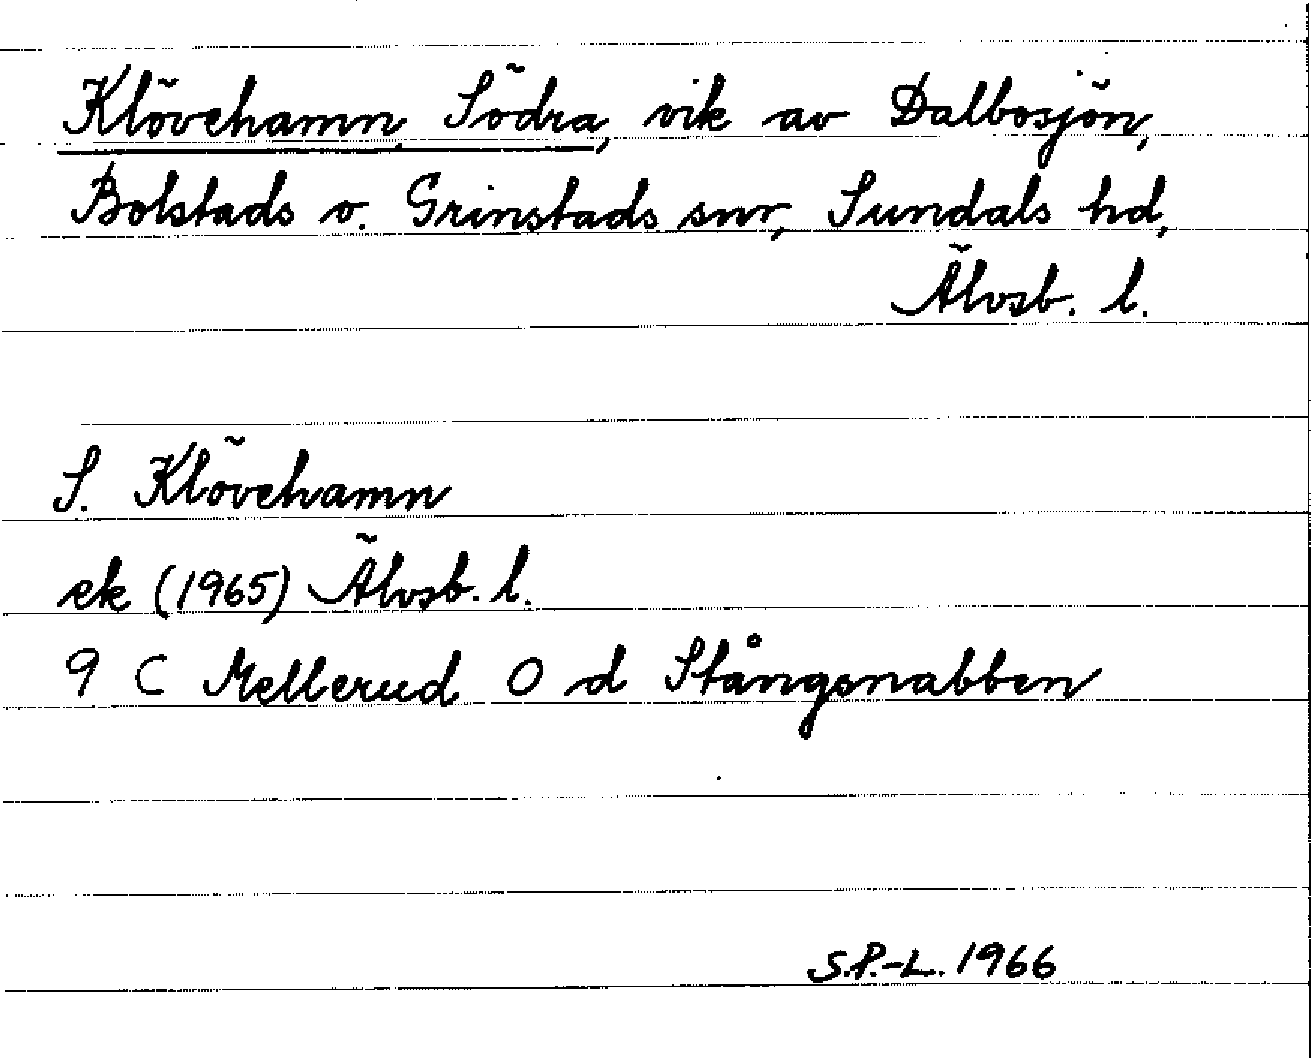 Klövehamn, Södra, vik av Dalbosjön,
Bolstads o. Grinstads snr, Sundals hd,
Älvsb. l.
S. Klövehamn
ek (1965) Älvsb. l.
9 C Mellerud O d Stångsnabben
S.P.-L. 1966